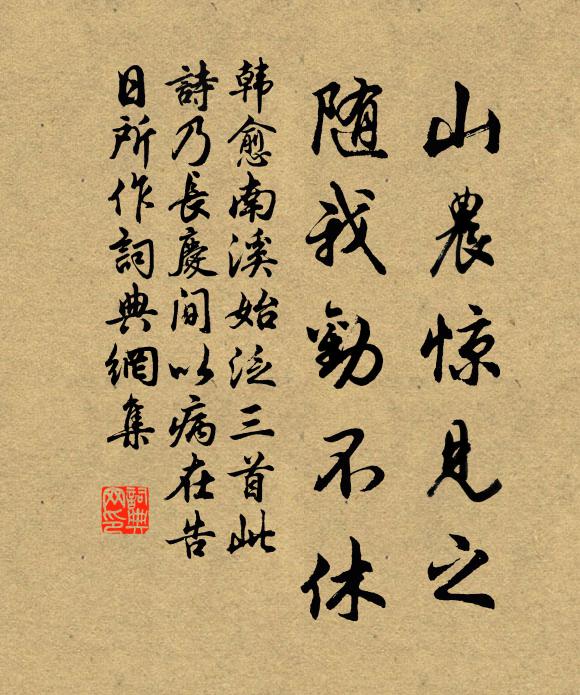 山農惊見之
随我勸不休
韩愈南溪始泛三首此
詩乃長慶间以病在告
日所作詞典網集
詞典
网印